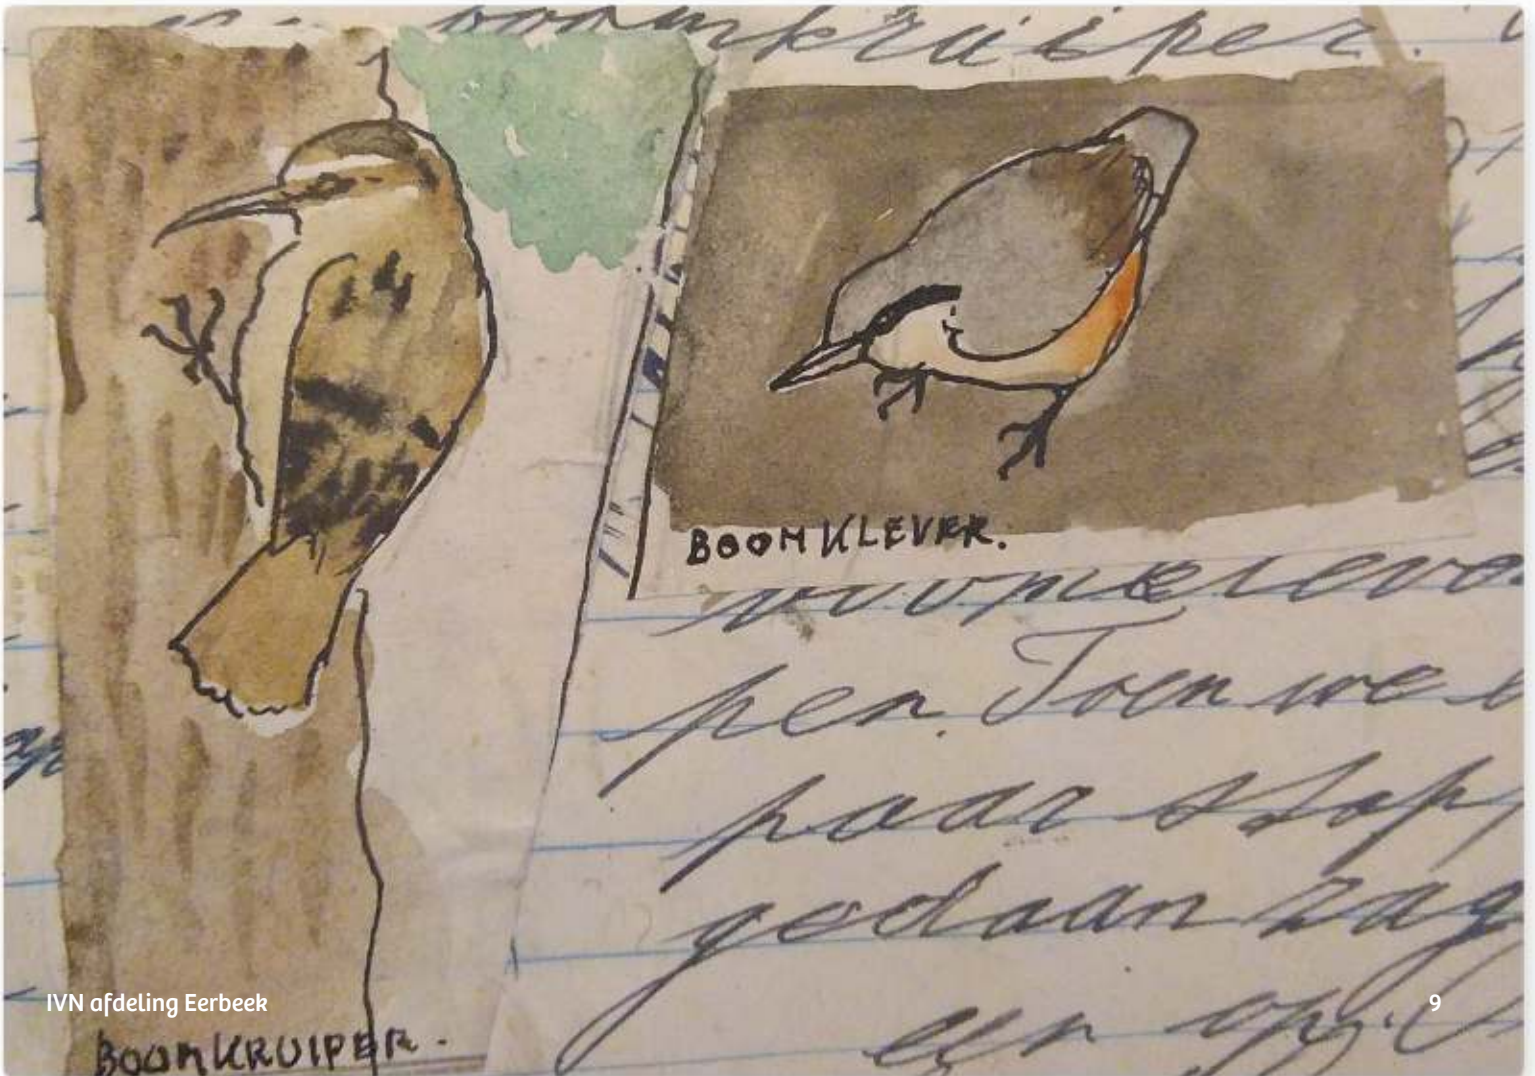 boomkruiper.
BOOMKLEVER.
pen. Toen we
paar stap
gedaan zag
een op.
IVN afdeling Eerbeek
9
BOOMKRUIPER.